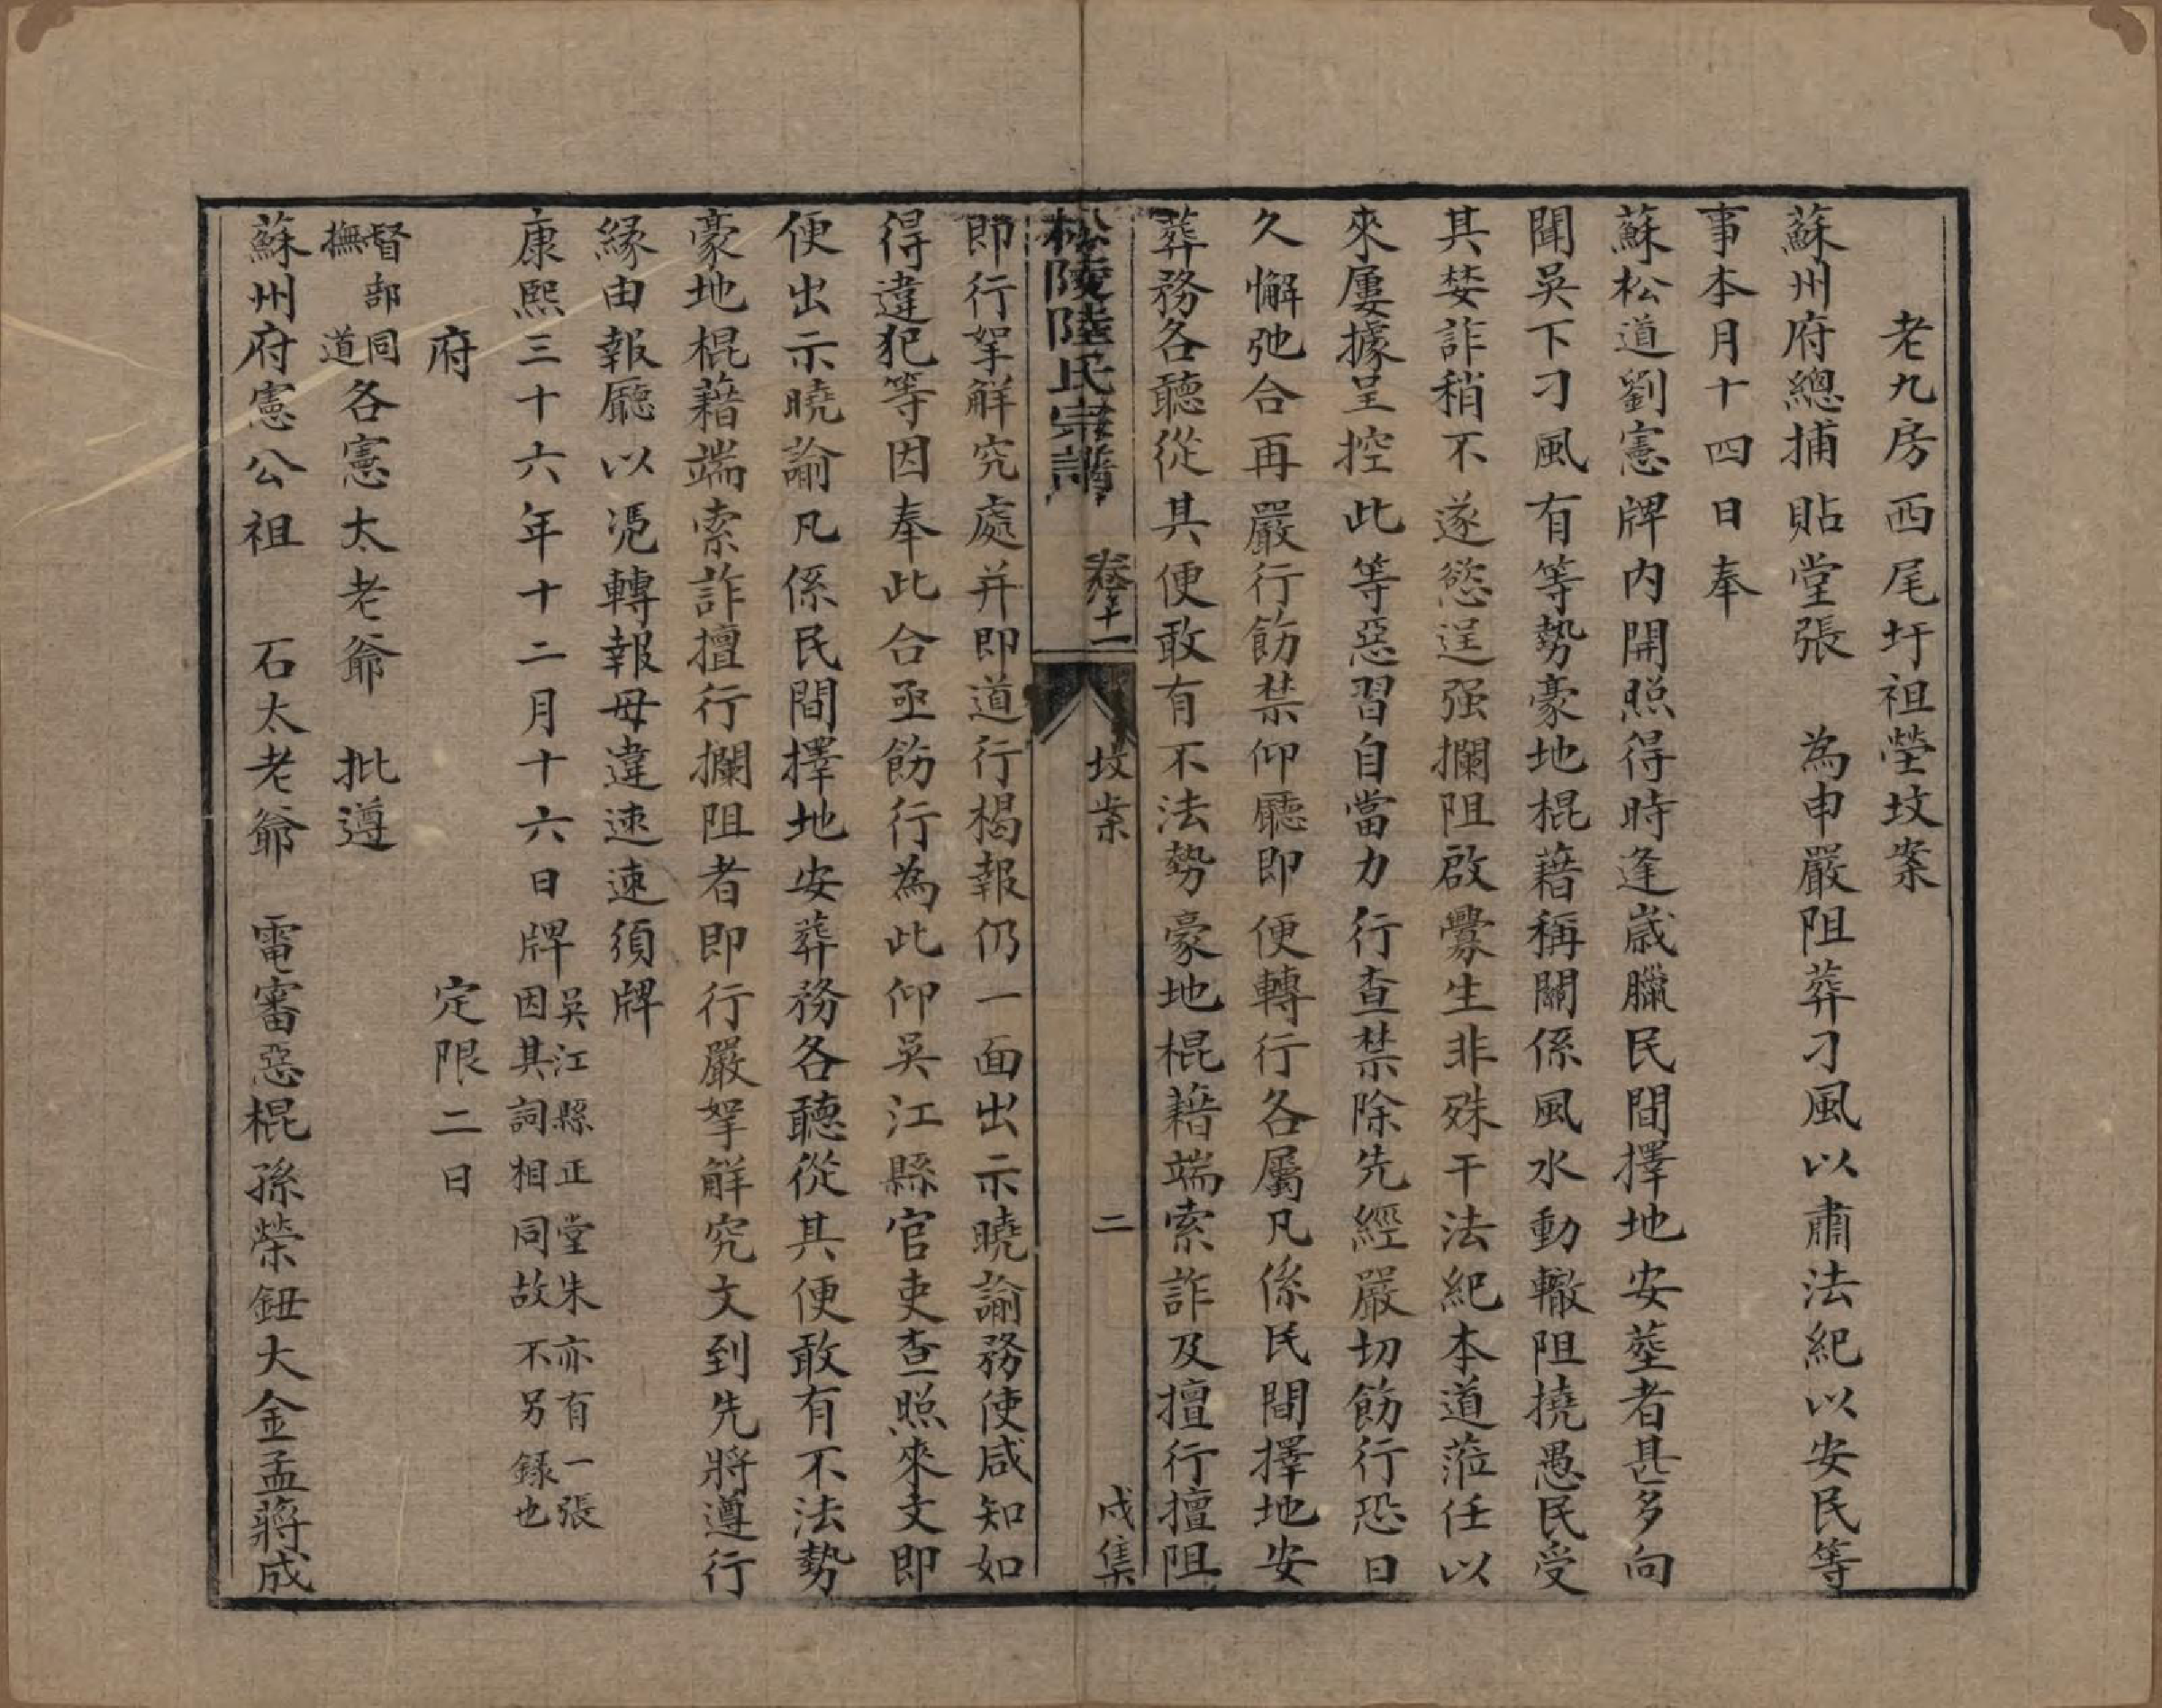 老九房西尾圩祖塋坟案
蘇州府總捕貼堂張　為申嚴阻葬刁風以肅法紀以安民等
事本月十四日奉
蘇松道劉憲牌内開照得時逢歲臘民間擇地安塟者甚多向
聞吳下刁風有等勢豪地棍藉稱關係風水動轍阻撓愚民受
其婪詐稍不遂慾逞强攔阻啟釁生非殊干法紀本道蒞任以
來屢據呈控此等惡習自當力行查禁除先經嚴切飭行恐日
久懈弛合再嚴行飭禁仰廳即便轉行各屬凡係民間擇地安
葬務各聽從其便敢有不法勢豪地棍藉端索詐及擅行擅阻
松陵陸氏宗譜　卷十一　坟案　二　戌集
即行拏解究處并即道行楬報仍一面出示曉諭務使咸知如
得違犯等因奉此合亟飭行為此仰吳江縣官吏查照來文即
便出示曉諭凡係民間擇地安葬務各聽從其便敢有不法勢
豪地棍藉端索詐擅行攔阻者即行嚴拏解究文到先將遵行
緣由報廳以凴轉報毋違速速須牌
康熙三十六年十二月十六日牌
吳江縣正堂朱亦有一張
因其詞相同故不另錄也
府　定限二日
督部同
撫道
各憲太老爺　批遵
蘇州府憲公祖　石太老爺　電審惡棍孫榮鈕大金孟蔣成